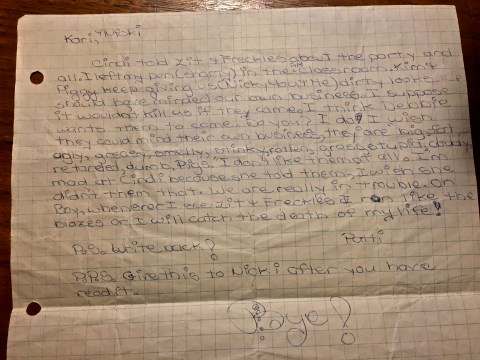 Kari, & Nicki
Cindi told Zit & Freckles about the party and
all. I left my pen (enarmy) in the classroom. Kim &
Piggy keep giving us (Nicky, You & Me) dirty looks
should have minded our own business. I suppose
it wouldnt kill us if they came. I think Debbie
wants them to come. Do you? I do! I wish
they could mind their own business, they are big, fat,
ugly, greasy, smelly, stinky, rotten, gross, stupid, cruddy,
retarded, dum, Pigs. I don't like them at all. I'm
mad at Cindi because she told them, I wish she
didn't them that. We are really in trouble. Oh
Boy, whenever I see Zit & Freckles I run like the
blazes or I will catch the death of my life!
P.S. Write back? Patti
P.P.S. Give this to Nicki after you have
read it.
Bye!